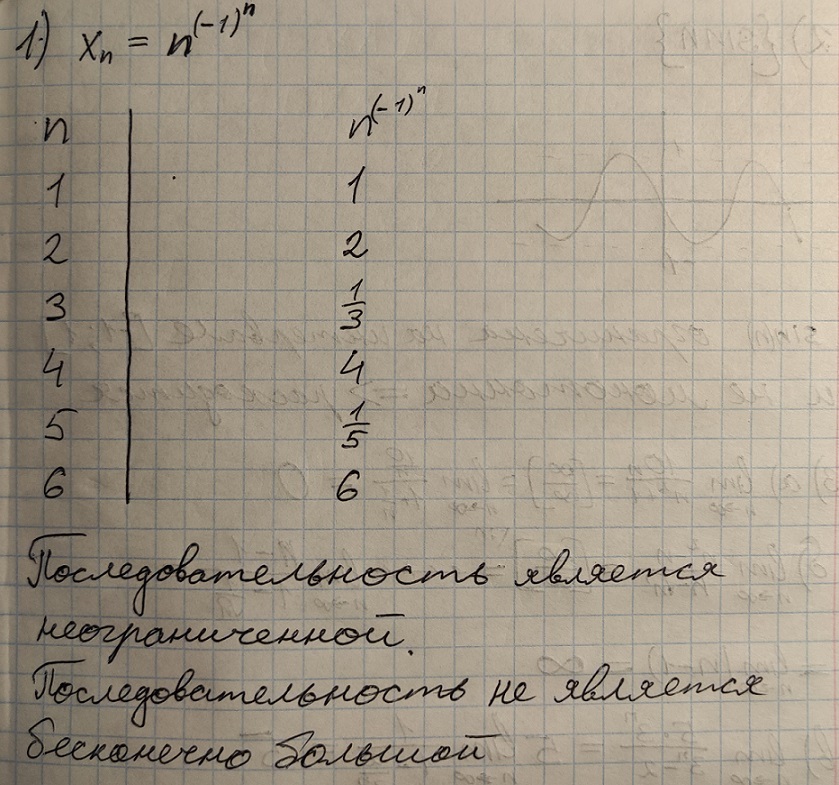 1) xₙ = n^(-1)^n
n n^(-1)^n
1 1
2 2
3 1/3
4 4
5 1/5
6 6
Последовательность является
неограниченной.
Последовательность не является
бесконечно большой